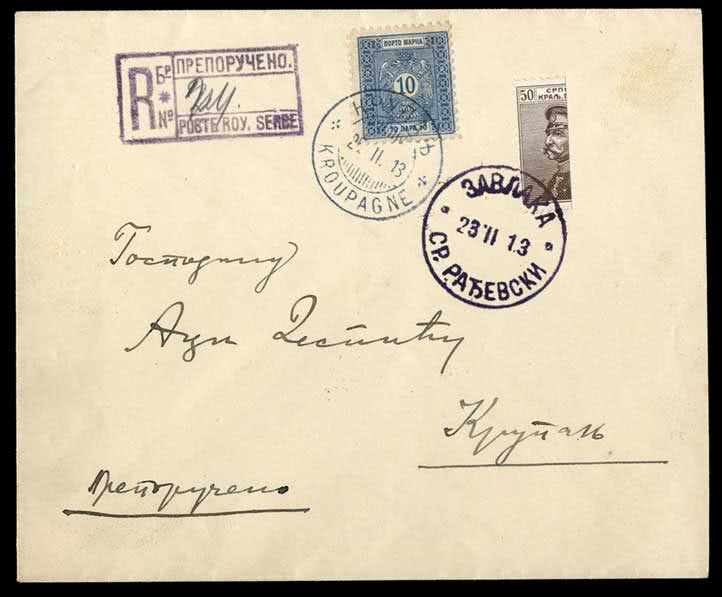 Бр ПРЕПОРУЧЕНО.
R * №
POSTE ROY. SERBE
ПОРТО МАРКА
10
10 ПАРА 10
25 II. 13
* KROUPAGNE *
50 СРП
КРАЉ.
ЗАВЛАКА
23 II 13
СР. РАЂЕВСКИ
Господину
Аци Деспићу
Крупањ
Препоручено